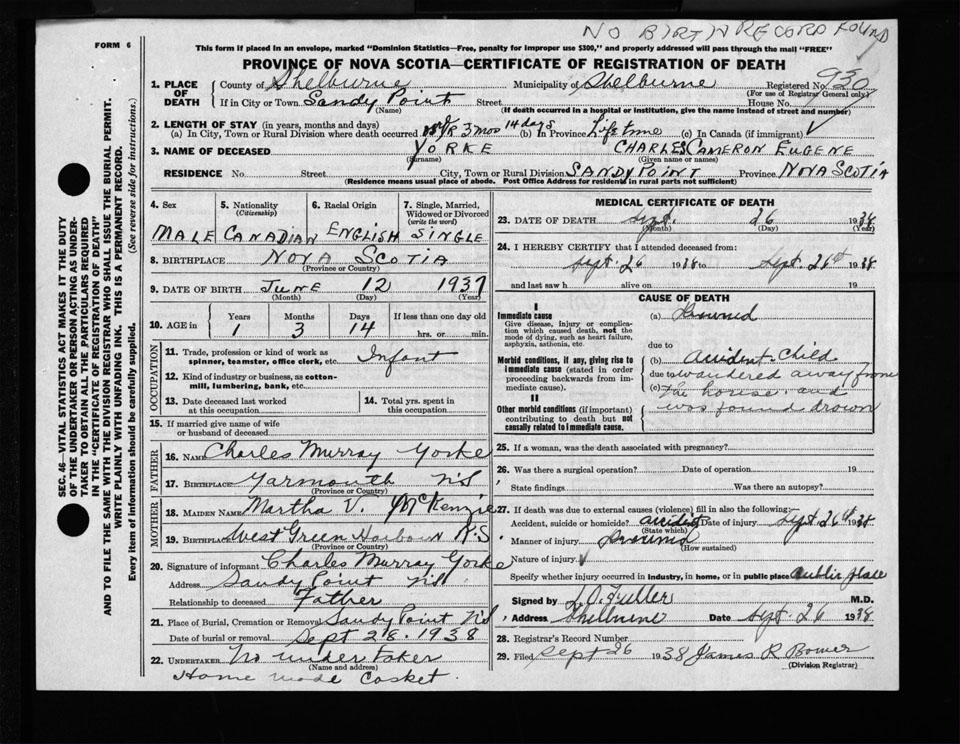 NO BIRTH RECORD FOUND
FORM 6
This form if placed in an envelope, marked "Dominion Statistics—Free, penalty for improper use $300," and properly addressed will pass through the mail "FREE"
PROVINCE OF NOVA SCOTIA—CERTIFICATE OF REGISTRATION OF DEATH
1. PLACE OF DEATH County of Shelburne Municipality of Shelburne Registered No. 930
(For use of Registrar General only)
If in City or Town Sandy Point Street House No.
(Name) (If death occurred in a hospital or institution, give the name instead of street and number)
2. LENGTH OF STAY (in years, months and days)
(a) In City, Town or Rural Division where death occurred 1 YR 3 mos 14 days (b) In Province Lifetime (c) In Canada (if immigrant)
3. NAME OF DECEASED YORKE CHARLES CAMERON EUGENE
(Surname) (Given name or names)
RESIDENCE No. Street City, Town or Rural Division SANDY POINT Province NOVA SCOTIA
(Residence means usual place of abode. Post Office Address for residents in rural parts not sufficient)
4. Sex
MALE
5. Nationality
(Citizenship)
CANADIAN
6. Racial Origin
ENGLISH
7. Single, Married, Widowed or Divorced
(write the word)
SINGLE
8. BIRTHPLACE NOVA SCOTIA
(Province or Country)
9. DATE OF BIRTH JUNE 12 1937
(Month) (Day) (Year)
10. AGE in Years Months Days If less than one day old
1 3 14 hrs. or min.
OCCUPATION
11. Trade, profession or kind of work as spinner, teamster, office clerk, etc. Infant
12. Kind of industry or business, as cotton-mill, lumbering, bank, etc.
13. Date deceased last worked at this occupation
14. Total yrs. spent in this occupation
15. If married give name of wife or husband of deceased
FATHER
16. NAME Charles Murray Yorke
17. BIRTHPLACE Yarmouth N.S
(Province or Country)
MOTHER
18. MAIDEN NAME Martha V. McKenzie
19. BIRTHPLACE West Green Harbour N.S
(Province or Country)
20. Signature of informant Charles Murray Yorke
Address Sandy Point N.S
Relationship to deceased Father
21. Place of Burial, Cremation or Removal Sandy Point N.S
Date of burial or removal Sept 28. 1938
22. UNDERTAKER No undertaker
(Name and address)
Home made Casket.
MEDICAL CERTIFICATE OF DEATH
23. DATE OF DEATH Sept. 26 1938
(Month) (Day) (Year)
24. I HEREBY CERTIFY that I attended deceased from:
Sept. 26 1938 to Sept. 26th 1938
and last saw h alive on 19
CAUSE OF DEATH
I
Immediate cause
Give disease, injury or complication which caused death, not the mode of dying, such as heart failure, asphyxia, asthenia, etc.
(a) Drowned
due to
Morbid conditions, if any, giving rise to immediate cause (stated in order proceeding backwards from immediate cause).
(b) accident. Child
due to wandered away from
(c) the house and
was found drown
II
Other morbid conditions (if important) contributing to death but not causally related to immediate cause.
25. If a woman, was the death associated with pregnancy?
26. Was there a surgical operation? Date of operation 19
State findings Was there an autopsy?
27. If death was due to external causes (violence) fill in also the following:
Accident, suicide or homicide? accident Date of injury Sept 26th 1938
(State which)
Manner of injury Drowned
(How sustained)
Nature of injury
Specify whether injury occurred in industry, in home, or in public place public place
Signed by L.O. Fuller M.D.
Address Shelburne Date Sept. 26 1938
28. Registrar's Record Number
29. Filed Sept 26 1938 James R Bower
(Division Registrar)
SEC. 46—VITAL STATISTICS ACT MAKES IT THE DUTY
OF THE UNDERTAKER OR PERSON ACTING AS UNDERTAKER TO OBTAIN ALL THE PARTICULARS REQUIRED
IN THE "CERTIFICATE OF REGISTRATION OF DEATH"
AND TO FILE THE SAME WITH THE DIVISION REGISTRAR WHO SHALL ISSUE THE BURIAL PERMIT.
WRITE PLAINLY WITH UNFADING INK. THIS IS A PERMANENT RECORD.
Every item of information should be carefully supplied. (See reverse side for instructions.)